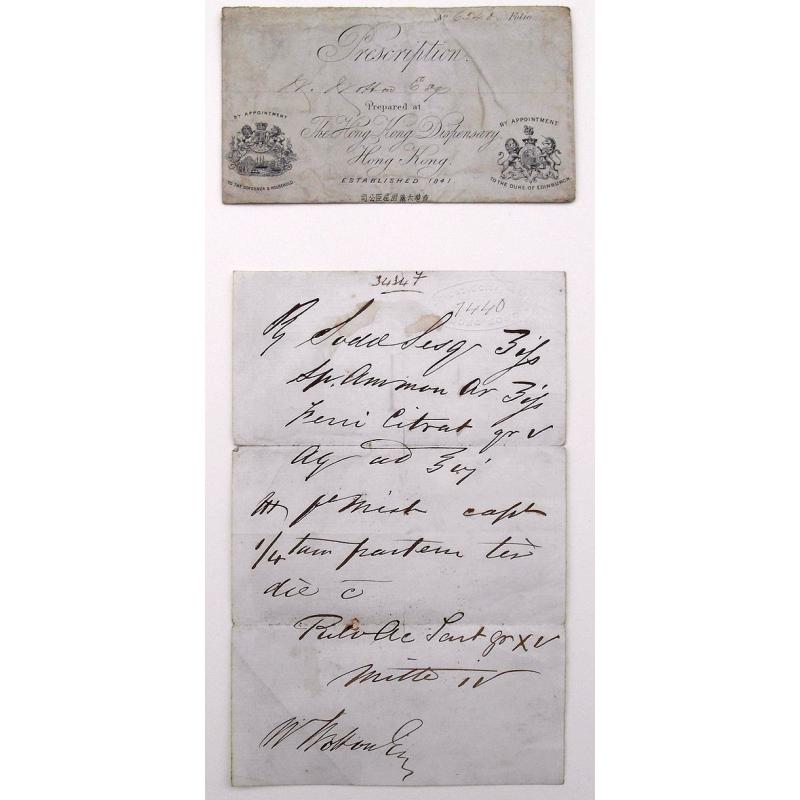 No 6548 Folio
Prescription.
W. Wotton Esq
Prepared at
The Hong-Kong Dispensary,
Hong Kong.
ESTABLISHED 1841.
BY APPOINTMENT
TO THE GOVERNOR & HOUSEHOLD
BY APPOINTMENT
TO THE DUKE OF EDINBURGH.
香港大藥房屈臣公司
34347
7440
℞ Sodae Sesq ʒifs
Sp. Ammon Ar ʒifs
Ferri Citrat gr v
Aq ad ℥vj
M ft Mist capt
1/4 tam partem ter
die c̄
Pulv Ac Tart gr xv
Mitte iv
W Wotton Esq